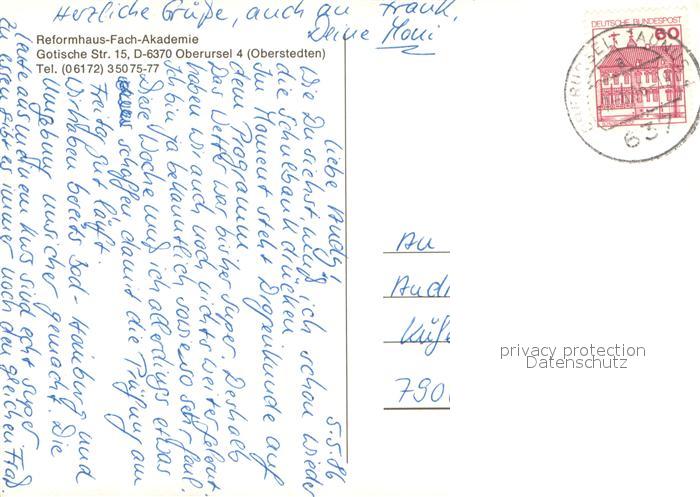 Herzliche Grüße, auch an Frank,
Deine Moni
Reformhaus-Fach-Akademie
Gotische Str. 15, D-6370 Oberursel 4 (Oberstedten)
Tel. (06172) 35075-77
5.5.86
Liebe Andy!
Wie Du siehst, muß ich schon wieder
die Schulbank drücken.
Im Moment steht Drogenkunde auf
dem Programm.
Das Wetter war bisher super. Deshalb
haben wir auch noch nichts weiter gelernt.
Ich bin ja bekanntlich sowieso sehr faul.
Diese Woche muß ich allerdings etwas
schaffen, damit die Prüfung am
Freitag gut läuft.
Wir haben bereits Bad-Homburg und
Umgebung unsicher gemacht. Die
Leute aus meinem Kurs sind echt super
zu essen gibt es immer noch den gleichen Fraß
DEUTSCHE BUNDESPOST
60
637
An
Andr
Küf
790
privacy protection
Datenschutz